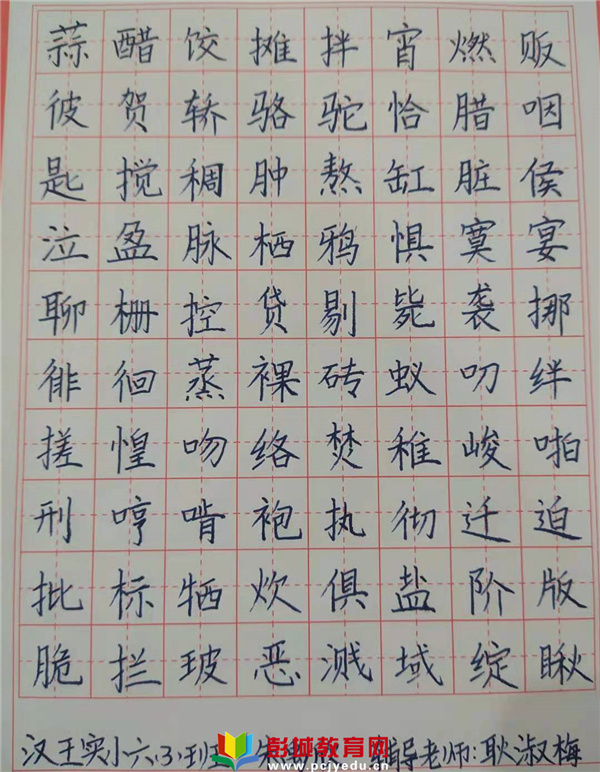 蒜醋饺摊拌宵燃贩
彼贺轿骆驼恰腊咽
匙搅稠肿熬缸脏侯
泣盈脉栖鸦惧寞宴
聊栅控贷剔毙袭挪
徘徊蒸裸砖蚁叨绊
搓惶吻络焚稚峻啪
刑哼啃袍执彻迁迫
批标牺炊俱盐阶版
脆拦玻恶溅域绽瞅
汉王实小六(3)班 朱 辅导老师:耿淑梅
彭城教育网
www.pcjyedu.cn